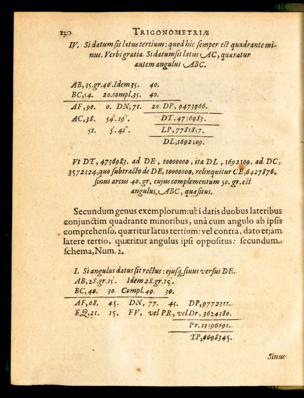 230 TRIGONOMETRIÆ
IV. Si datum sit latus tertium: quod hic semper est quadrante mi-
nus. Verbi gratia. Si datum sit latus AC, quæratur
autem angulus ABC.
AB, 35. gr. 40'. Idem 35. 40.
BC, 54. 20. compl. 35. 40.
AF, 90. 0. DN, 71. 20. DP, 9473966.
AC, 38. 54'. 19". DT, 4736983.
51. 5'. 41". LP, 7781817.
DL, 1692109.
Vt DT, 4736983. ad DE, 10000000, ita DL, 1692109. ad DC,
3572124, quo subtracto de DE, 10000000, relinquitur CE, 6427876,
sinus arcus 40. gr. cujus complementum 50. gr. est
angulus ABC, quæsitus.
Secundum genus exemplorum: uti datis duobus lateribus
conjunctim quadrante minoribus, unà cum angulo ab ipsis
comprehenso, quæritur latus tertium: vel contra, dato etjam
latere tertio, quæritur angulus ipsi oppositus: secundum
schema, Num. 2.
I. Si angulus datus sit rectus: ejusq́, sinus versus DE.
AB, 28. gr. 15'. Idem 28. gr. 15'.
BC, 40. 30. Compl. 49. 30.
AF, 68. 45. DN, 77. 45. DP, 9772311.
EQ, 21. 15. FV, vel PR, vel Dr, 3624380.
Pr. 13396691.
TP, 6698345.
Sinus